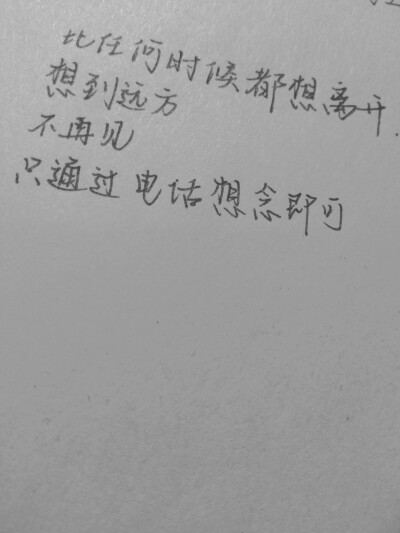 比任何时候都想离开.
想到远方
不再见
只通过电话想念即可